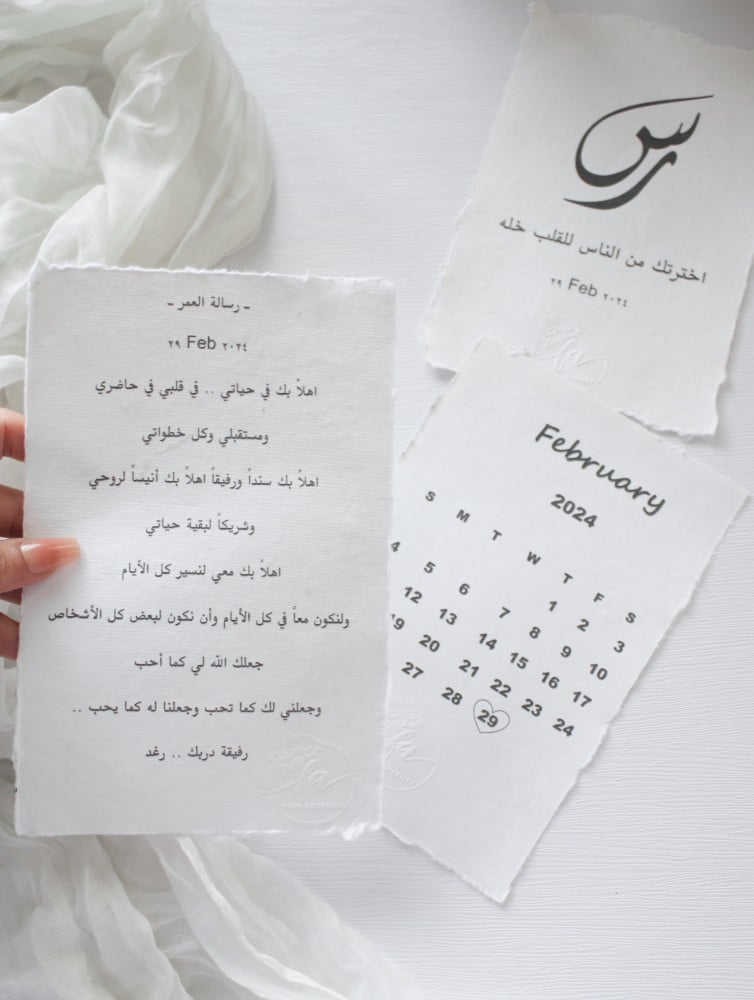 - رسالة العمر -
٢٩ Feb ٢٠٢٤
اهلاً بك في حياتي .. في قلبي في حاضري
ومستقبلي وكل خطواتي
اهلاً بك سنداً ورفيقاً اهلاً بك أنيساً لروحي
وشريكاً لبقية حياتي
اهلاً بك معي لنسير كل الأيام
ولنكون معاً في كل الأيام وأن نكون لبعض كل الأشخاص
جعلك الله لي كما أحب
وجعلني لك كما تحب وجعلنا له كما يحب ..
رفيقة دربك .. رغد
اخترتك من الناس للقلب خله
٢٩ Feb ٢٠٢٤
February
2024
S M T W T F S
1 2 3
4 5 6 7 8 9 10
12 13 14 15 16 17
19 20 21 22 23 24
27 28 29